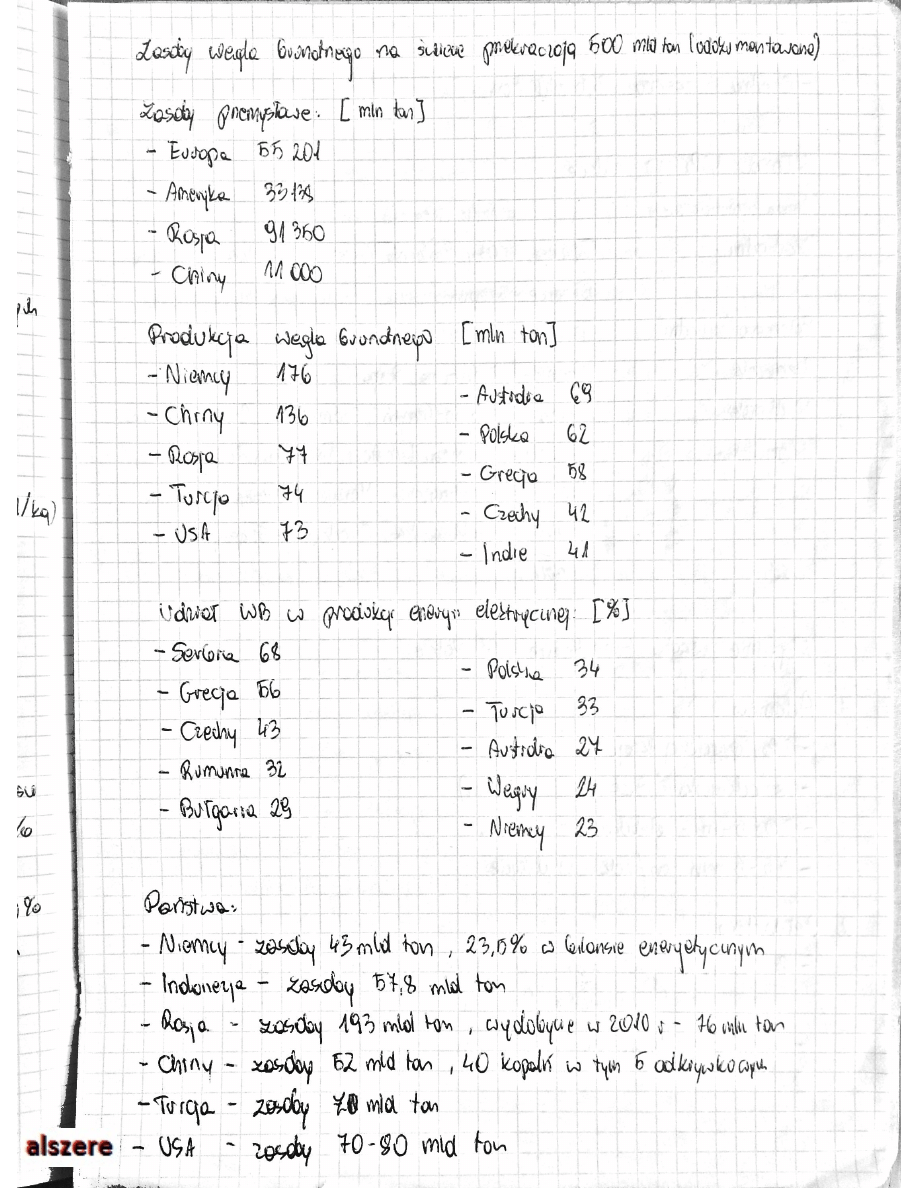 Zasoby węgla brunatnego na świecie przekraczają 500 mld ton (udokumentowane)
Zasoby przemysłowe: [mln ton]
- Europa 55 201
- Ameryka
- Rosja 91 350
- Chiny 11 000
Produkcja węgla brunatnego [mln ton]
- Niemcy 176
- Chiny 136
- Rosja 77
- Turcja 74
- USA 73
- Australia 69
- Polska 62
- Grecja 58
- Czechy 42
- Indie 41
Udział WB w produkcji energii elektrycznej: [%]
- Serbia 68
- Grecja 56
- Czechy 43
- Rumunia 32
- Bułgaria 29
- Polska 34
- Turcja 33
- Australia 27
- Węgry 24
- Niemcy 23
Państwa:
- Niemcy - zasoby 43 mld ton, 23,5% w bilansie energetycznym
- Indonezja - zasoby 57,8 mld ton
- Rosja - zasoby 193 mld ton, wydobycie w 2010 r - 76 mln ton
- Chiny - zasoby 52 mld ton, 40 kopalń w tym 5 odkrywkowych
- Turcja - zasoby mld ton
- USA - zasoby 70-80 mld ton
alszere